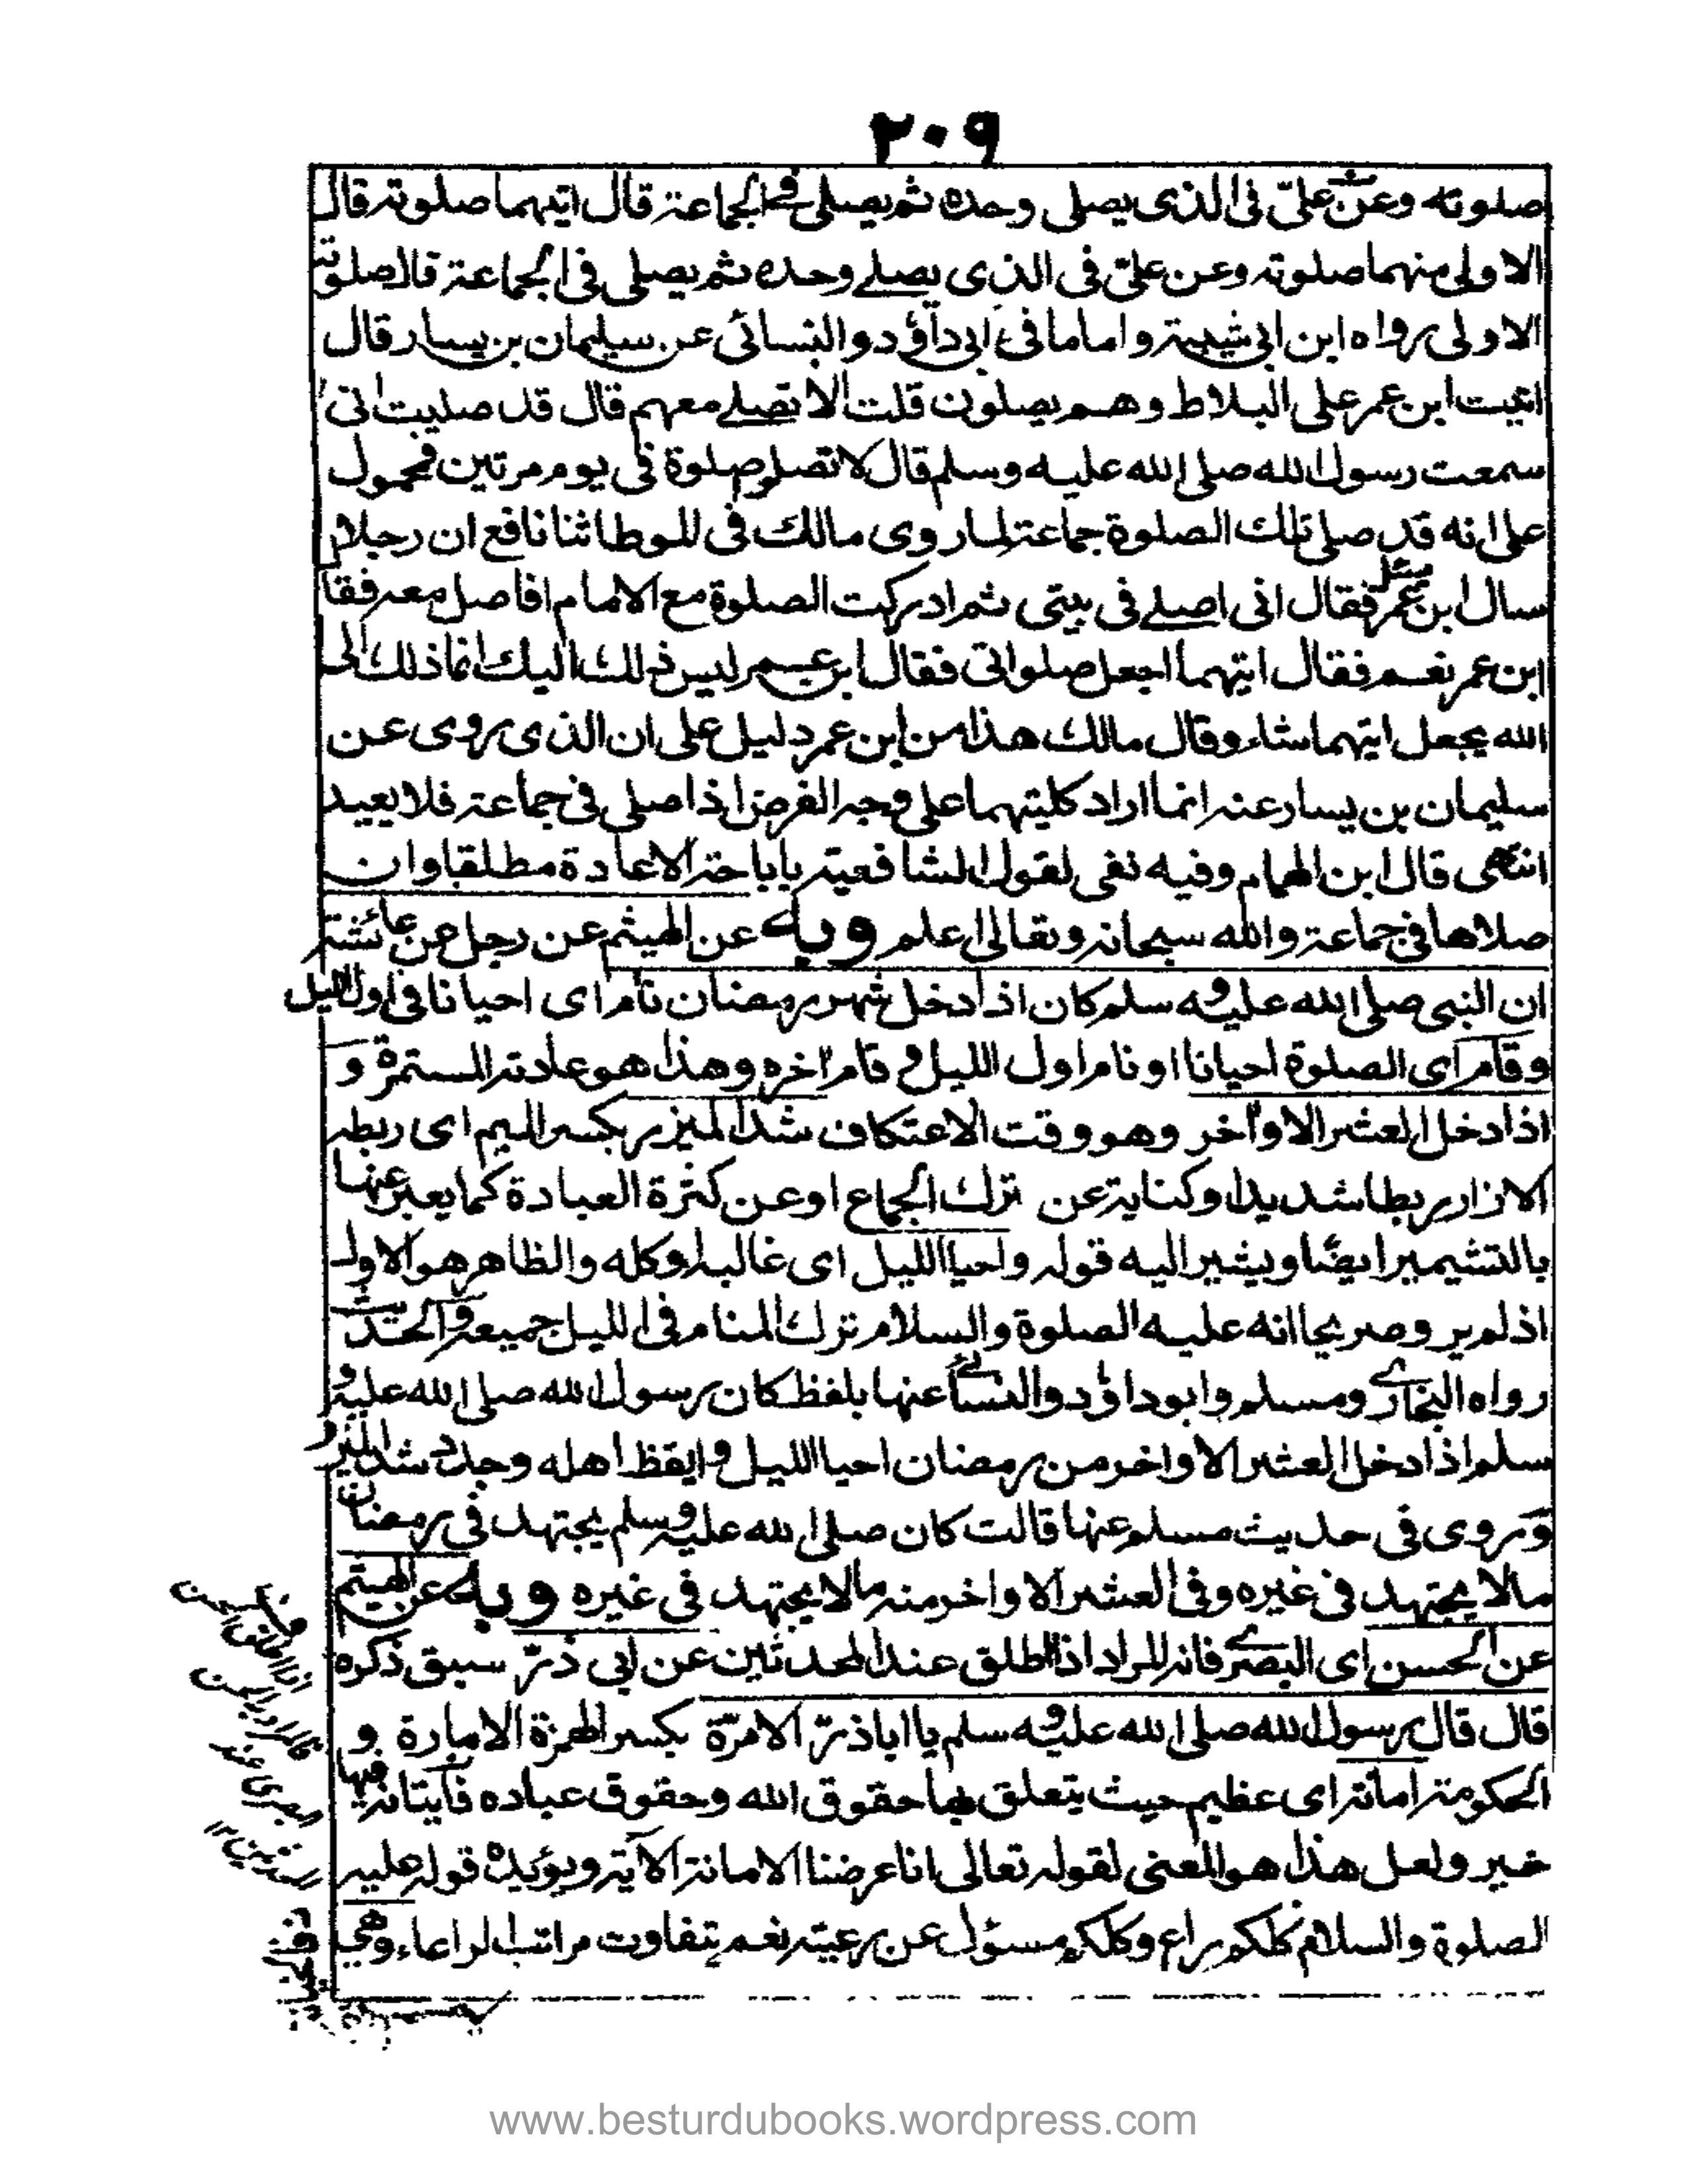 ٢٠٩
صلوته وعن علىّ فى الذى يصلى وحده ثم يصلى فى الجماعة قال ايتهما صلوته قال
الاولى منهما صلوته وعن علىّ فى الذى يصلے وحده ثم يصلى فى الجماعة قال صلوته
الاولى رواه ابن ابى شيبة واما ما فى ابى داؤد والنسائى عن سليمان بن يسار قال
اتيت ابن عمر على البلاط وهم يصلون قلت الا تصلے معهم قال قد صليت انى
سمعت رسول الله صلى الله عليه وسلم قال لا تصلوا صلوة فى يوم مرتين فمحمول
على انه قد صلى تلك الصلوة جماعة لما روى مالك فى الموطا ثنا نافع ان رجلا
سال ابن عمر فقال انى اصلے فى بيتى ثم ادركت الصلوة مع الامام افاصل معه فقا
ابن عمر نعم فقال ايتهما اجعل صلواتى فقال ابن عمر ليس ذلك اليك انما ذلك الى
الله يجعل ايتهما شاء وقال مالك هذا من ابن عمر دليل على ان الذى روى عن
سليمان بن يسار عنه انما اراد كليتهما على وجه الفرض اذا صلى فى جماعة فلا يعيد
انتهى قال ابن الهمام وفيه نفى لقول الشافعية باباحة الاعادة مطلقا وان
صلاها فى جماعة والله سبحانه وتعالى اعلم وبه عن الهيثم عن رجل عن عائشة
ان النبى صلى الله عليه وسلم كان اذا دخل شهر رمضان نام اى احيانا فى اول الليل
وقام اى الصلوة احيانا او نام اول الليل و قام اخره وهذا هو عادته المستمرة و
اذا دخل العشر الاواخر وهو وقت الاعتكاف شد المئزر بكسر الميم اى ربطه
الازار ربطا شديدا وكناية عن ترك الجماع او عن كثرة العبادة كما يعبر عنها
بالتشمير ايضا ويشير اليه قوله واحيا الليل اى غالبه او كله والظاهر هو الاول
اذ لم يرو صريحا انه عليه الصلوة والسلام ترك المنام فى الليل جميعه والحديث
رواه البخارے ومسلم وابوداؤد والنسائے عنها بلفظ كان رسول الله صلى الله عليه و
سلم اذا دخل العشر الاواخر من رمضان احيا الليل وايقظ اهله وجد وشد المئزر
وروى فى حديث مسلم عنها قالت كان صلى الله عليه وسلم يجتهد فى رمضان
مالا يجتهد فى غيره وفى العشر الاواخر منه مالا يجتهد فى غيره وبه عن الهيثم
عن الحسن اى البصرے فانه المراد اذا اطلق عند المحدثين عن ابى ذرّ سبق ذكره
قال قال رسول الله صلى الله عليه وسلم يا اباذرّ الامرّة بكسر الهمزة الامارة و
الحكومة امانة اى عظيم حيث يتعلق بها حقوق الله وحقوق عباده فاتيانه فيها
خبر ولعل هذا هو المعنى لقوله تعالى انا عرضنا الامانة الآية ويؤيده قوله عليه
الصلوة والسلام كلكم راع وكلكم مسؤل عن رعيته نعم يتفاوت مراتب الراعاء وهى
www.besturdubooks.wordpress.com